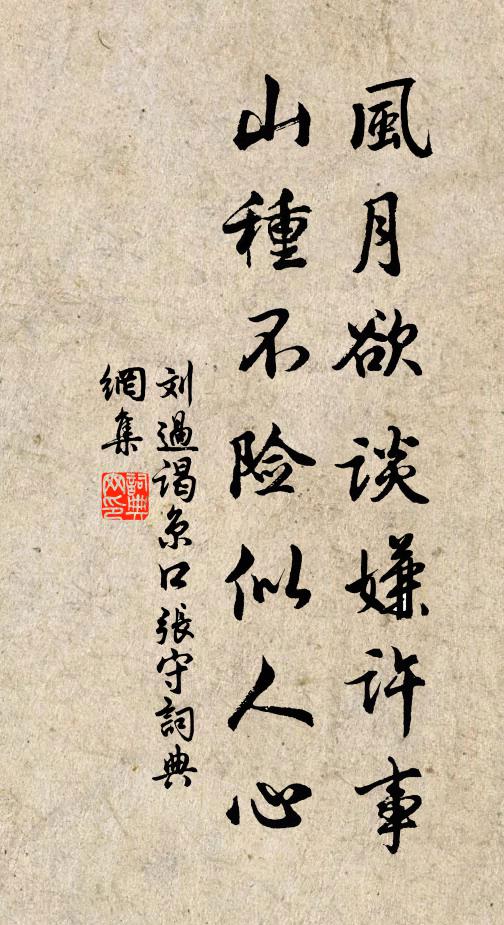 風月欲談嫌許事
山種不险似人心
刘過謁京口張守詞典
網集
詞典
网印